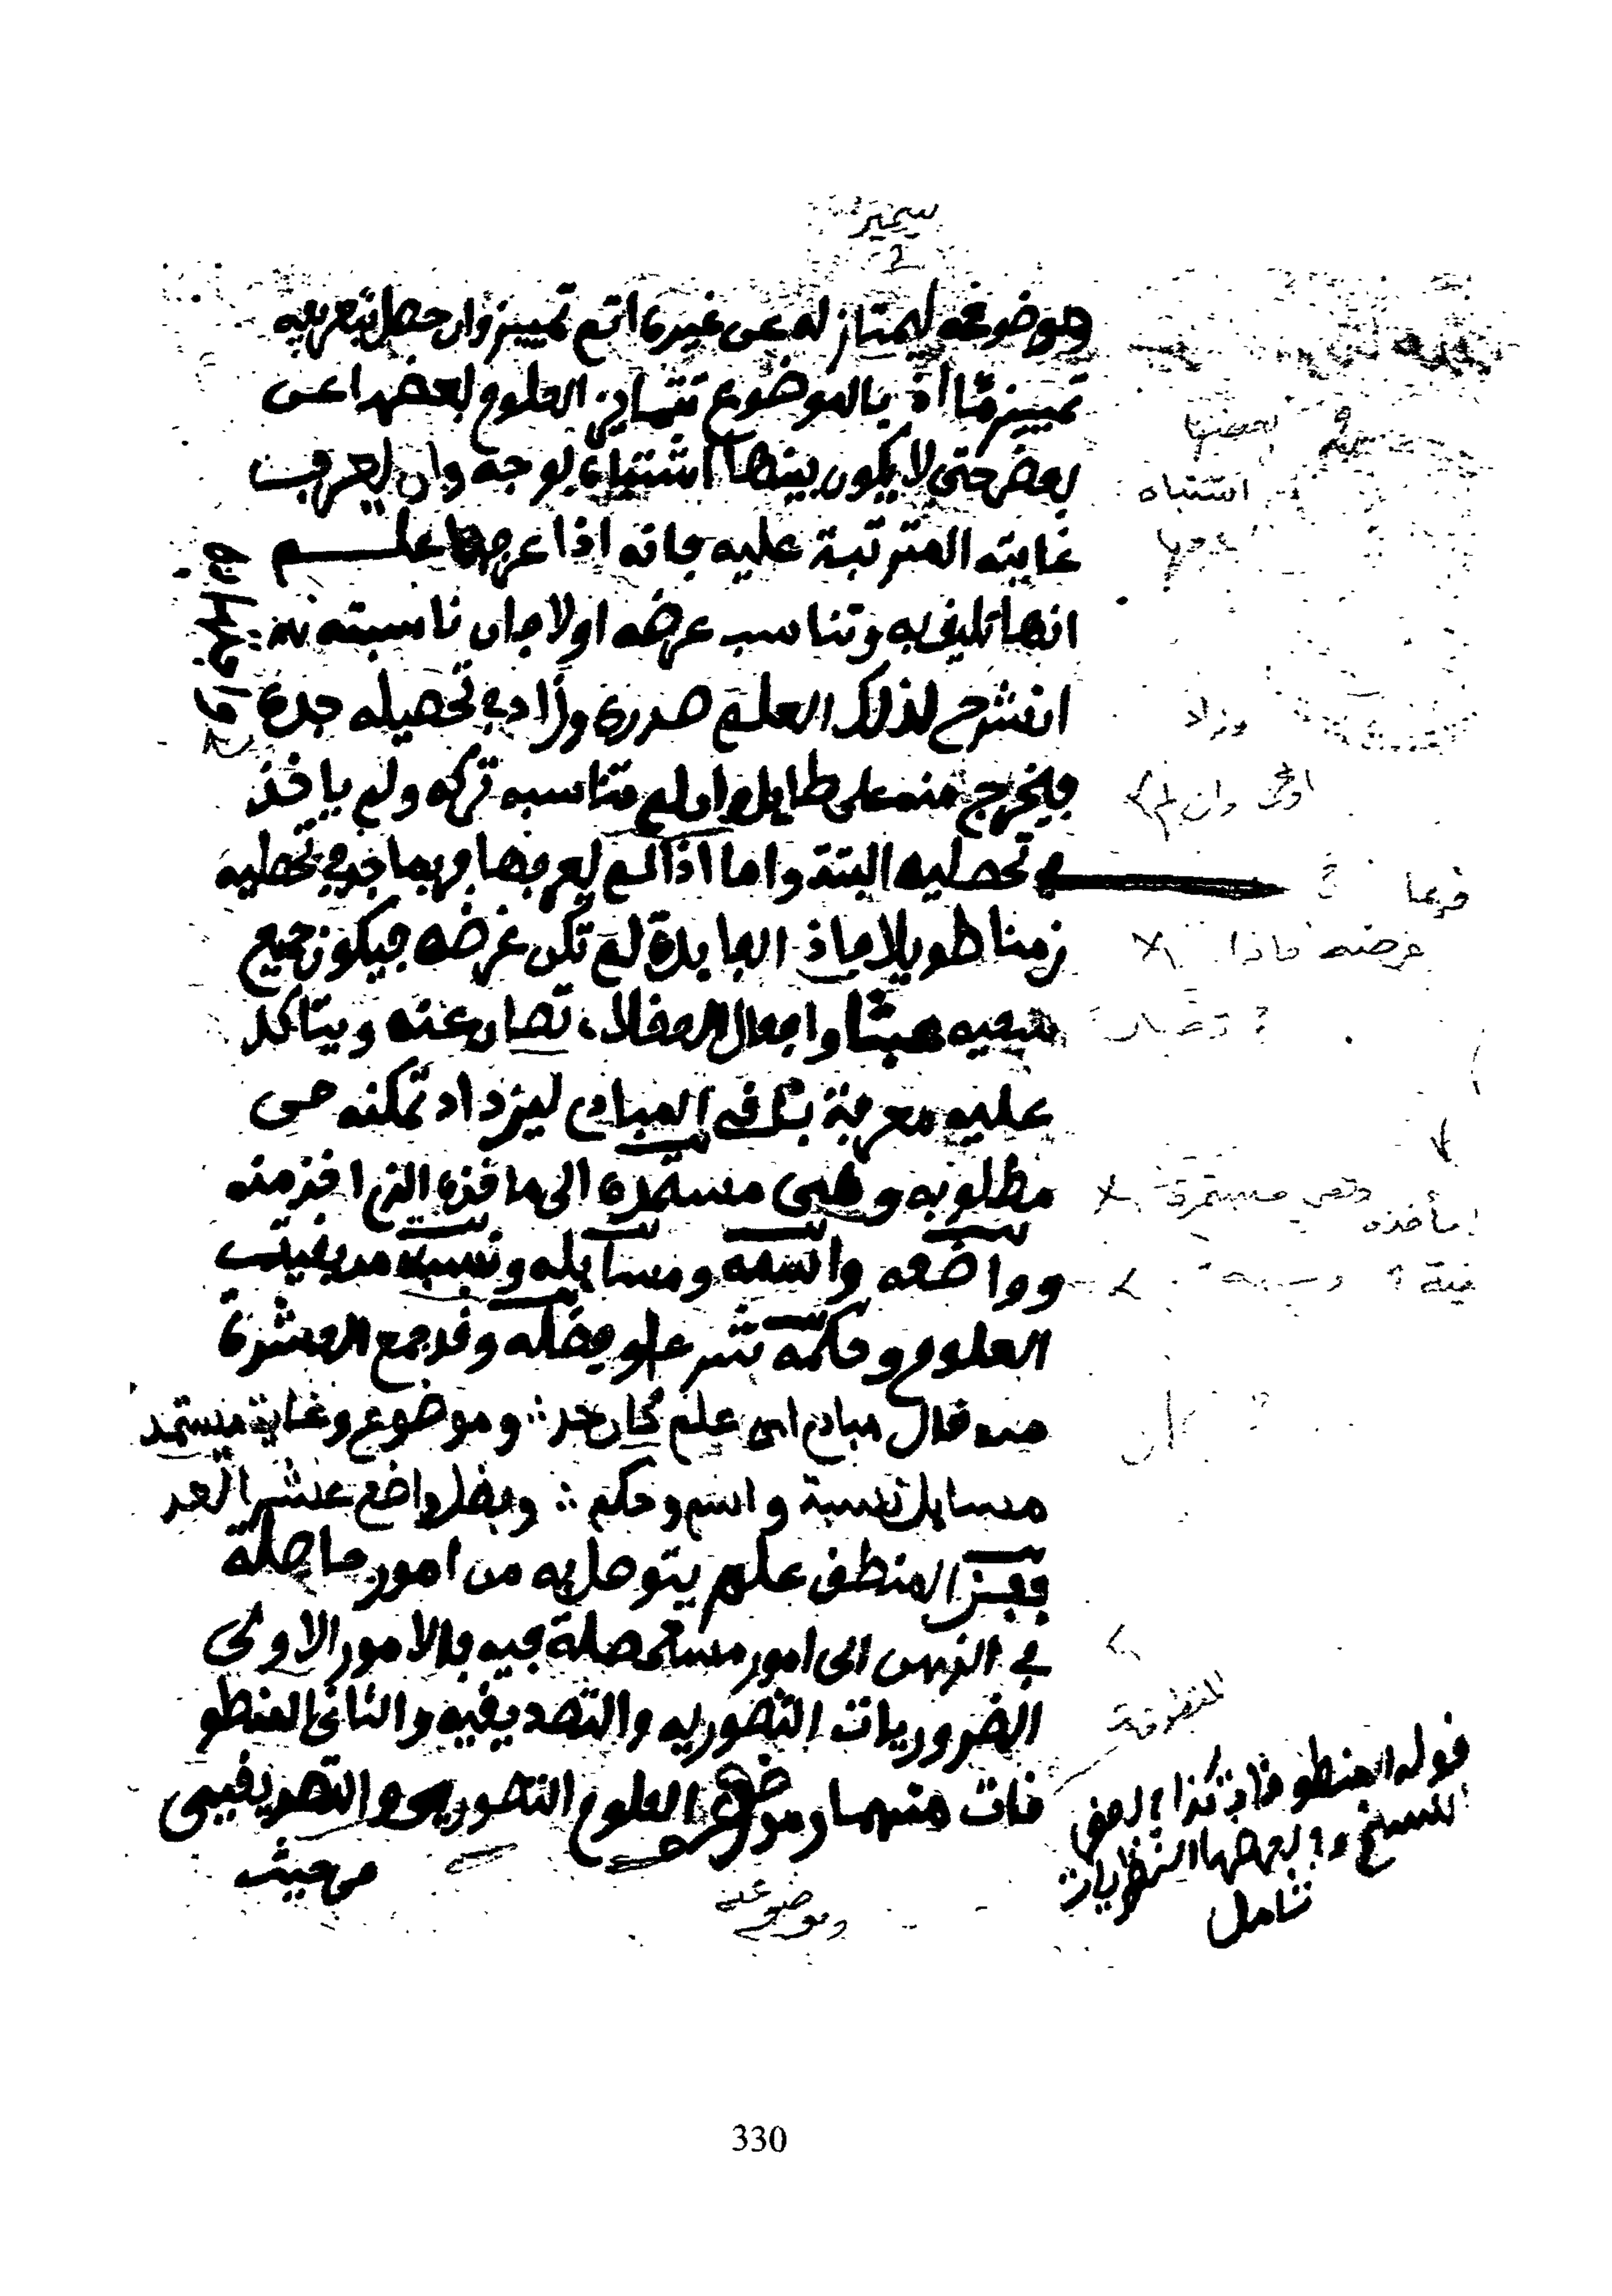 موضوعه ليمتاز له عن غيره اتم تمييز وان حصل بتعريفه
تمييز ما اذ بالموضوع تتمايز العلوم بعضها عن
بعض حتى لا يكون بينها اشتباه بوجه وان يعرف
غايته المترتبة عليه فانه اذا عرفها علم
انها تليق به وتناسب غرضه اولا فان ناسبته
انشرح لذلك العلم صدره وزاد في تحصيله جده
فيخرج منه على طايل وان لم تناسبه تركه ولم ياخذ
في تحصليه البتة واما اذا لم يعرفها فربما جرى في تحصليه
زمنا طويلا فاذ الفايدة لم تكن غرضه فيكون جميع
سعيه عبثا وافعال العقلاء تصان عنه ويتاكد
عليه معرفة باقي المبادي ليزداد تمكنه من
مطلوبه وهي مستمده الى ماخذه الذي اخذ منه
وواضعه واسمه ومسايله ونسبته من بقية
العلوم وحكمه شرعا وفضله وقد جمع العشرة
من قال مبادي اي علم كان حد ∴ وموضوع وغاية مستمد
مسايل نسبة واسم وحكم ∴ وفضل واضع عشر العد
فحد المنطق علم يتوصل به من امور حاصلة
في الذهن الى امور مستحصلة فيه فالامور الاولى
الضروريات التصوريه والتصديقيه والثاني المنطو
قات منهما وموضوع العلوم التصوري والتصديقيي
من حيث
بعضها
اشتباه
عرفها
وزاد
وان لم
فربما
غرضه فاذا
تصان
وهي مستمدة
مأخذه
قوله المنطوقات كذا في بعض
النسخ وفي بعضها النظريات
تامل
وموضوعه
330